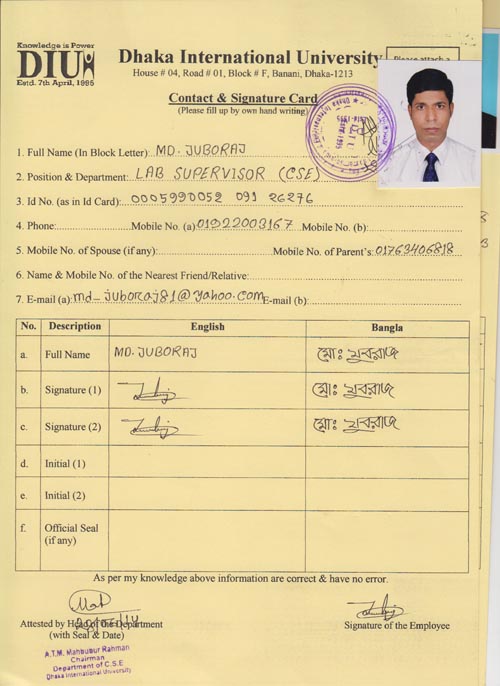 Knowledge is Power
DIU
Estd. 7th April, 1995
Dhaka International University
House # 04, Road # 01, Block # F, Banani, Dhaka-1213
Please attach a
Contact & Signature Card
(Please fill up by own hand writing)
1. Full Name (In Block Letter): MD. JUBORAJ
2. Position & Department: LAB SUPERVISOR (CSE)
3. Id No. (as in Id Card): 0005990052 091 26276
4. Phone: Mobile No. (a) 01922003167 Mobile No. (b):
5. Mobile No. of Spouse (if any): Mobile No. of Parent's: 01763406818
6. Name & Mobile No. of the Nearest Friend/Relative:
7. E-mail (a): md_juboraj81@yahoo.com E-mail (b):
No. Description English Bangla
a. Full Name MD. JUBORAJ মোঃ যুবরাজ
b. Signature (1) মোঃ যুবরাজ
c. Signature (2) মোঃ যুবরাজ
d. Initial (1)
e. Initial (2)
f. Official Seal
(if any)
As per my knowledge above information are correct & have no error.
Attested by Head of the Department
(with Seal & Date)
Signature of the Employee
A.T.M. Mahbubur Rahman
Chairman
Department of C.S.E
Dhaka International University